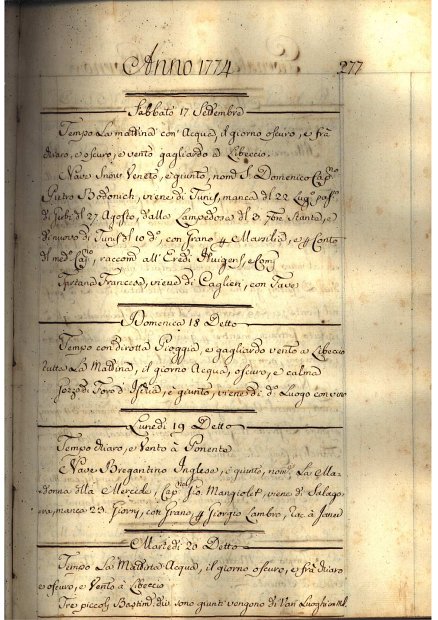 Anno 1774 277
Sabbato 17 Settembre
Tempo La mattina con Acqua, il giorno oscuro, e frà
chiaro, e oscuro, e vento gagliardo a Libeccio
Nave Veneto, e giunto, nom.º S. Domenico Cap.no
Pietro Bodovich, viene di Tunis, manca dal 22 Lug.º
dal 27 Agosto, dalla Lampedosa dal 3. 7bre e
di nuovo di Tunis dal 10 d.º, con Grano Marsilia, e Conto
del med.º Cap.no, raccom.
Tartana Francese, viene di Caglieri, con Fave
Domenica 18 Detto
Tempo con dirotta Pioggia, e gagliardo vento a Libeccio
tutta La Mattina, il giorno Acqua, oscuro, e calma
d'Ischia, è giunto, viene di d.º Luogo con vino
Lunedi 19 Detto
Tempo chiaro, e Vento à Ponente
Nave Bregantino Inglese, è giunto, nom.º La Ma-
donna della Mercede, Cap.no Gio. viene di
manca 23 Giorni, con Grano, Giorgio
Martedi 20 Detto
Tempo La Mattina Acqua, il giorno oscuro, e frà chiaro
e oscuro, e Vento à Libeccio
Tre piccoli Bastim.ti sono giunti vengono di Vari Luoghi